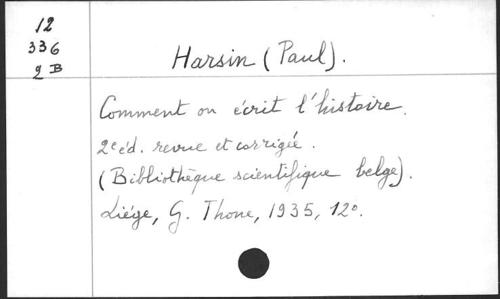 12
336
2 B
Harsin (Paul).
Comment on écrit l'histoire.
2e éd. revue et corrigée.
(Bibliothèque scientifique belge).
Liége, G. Thone, 1935, 12o.